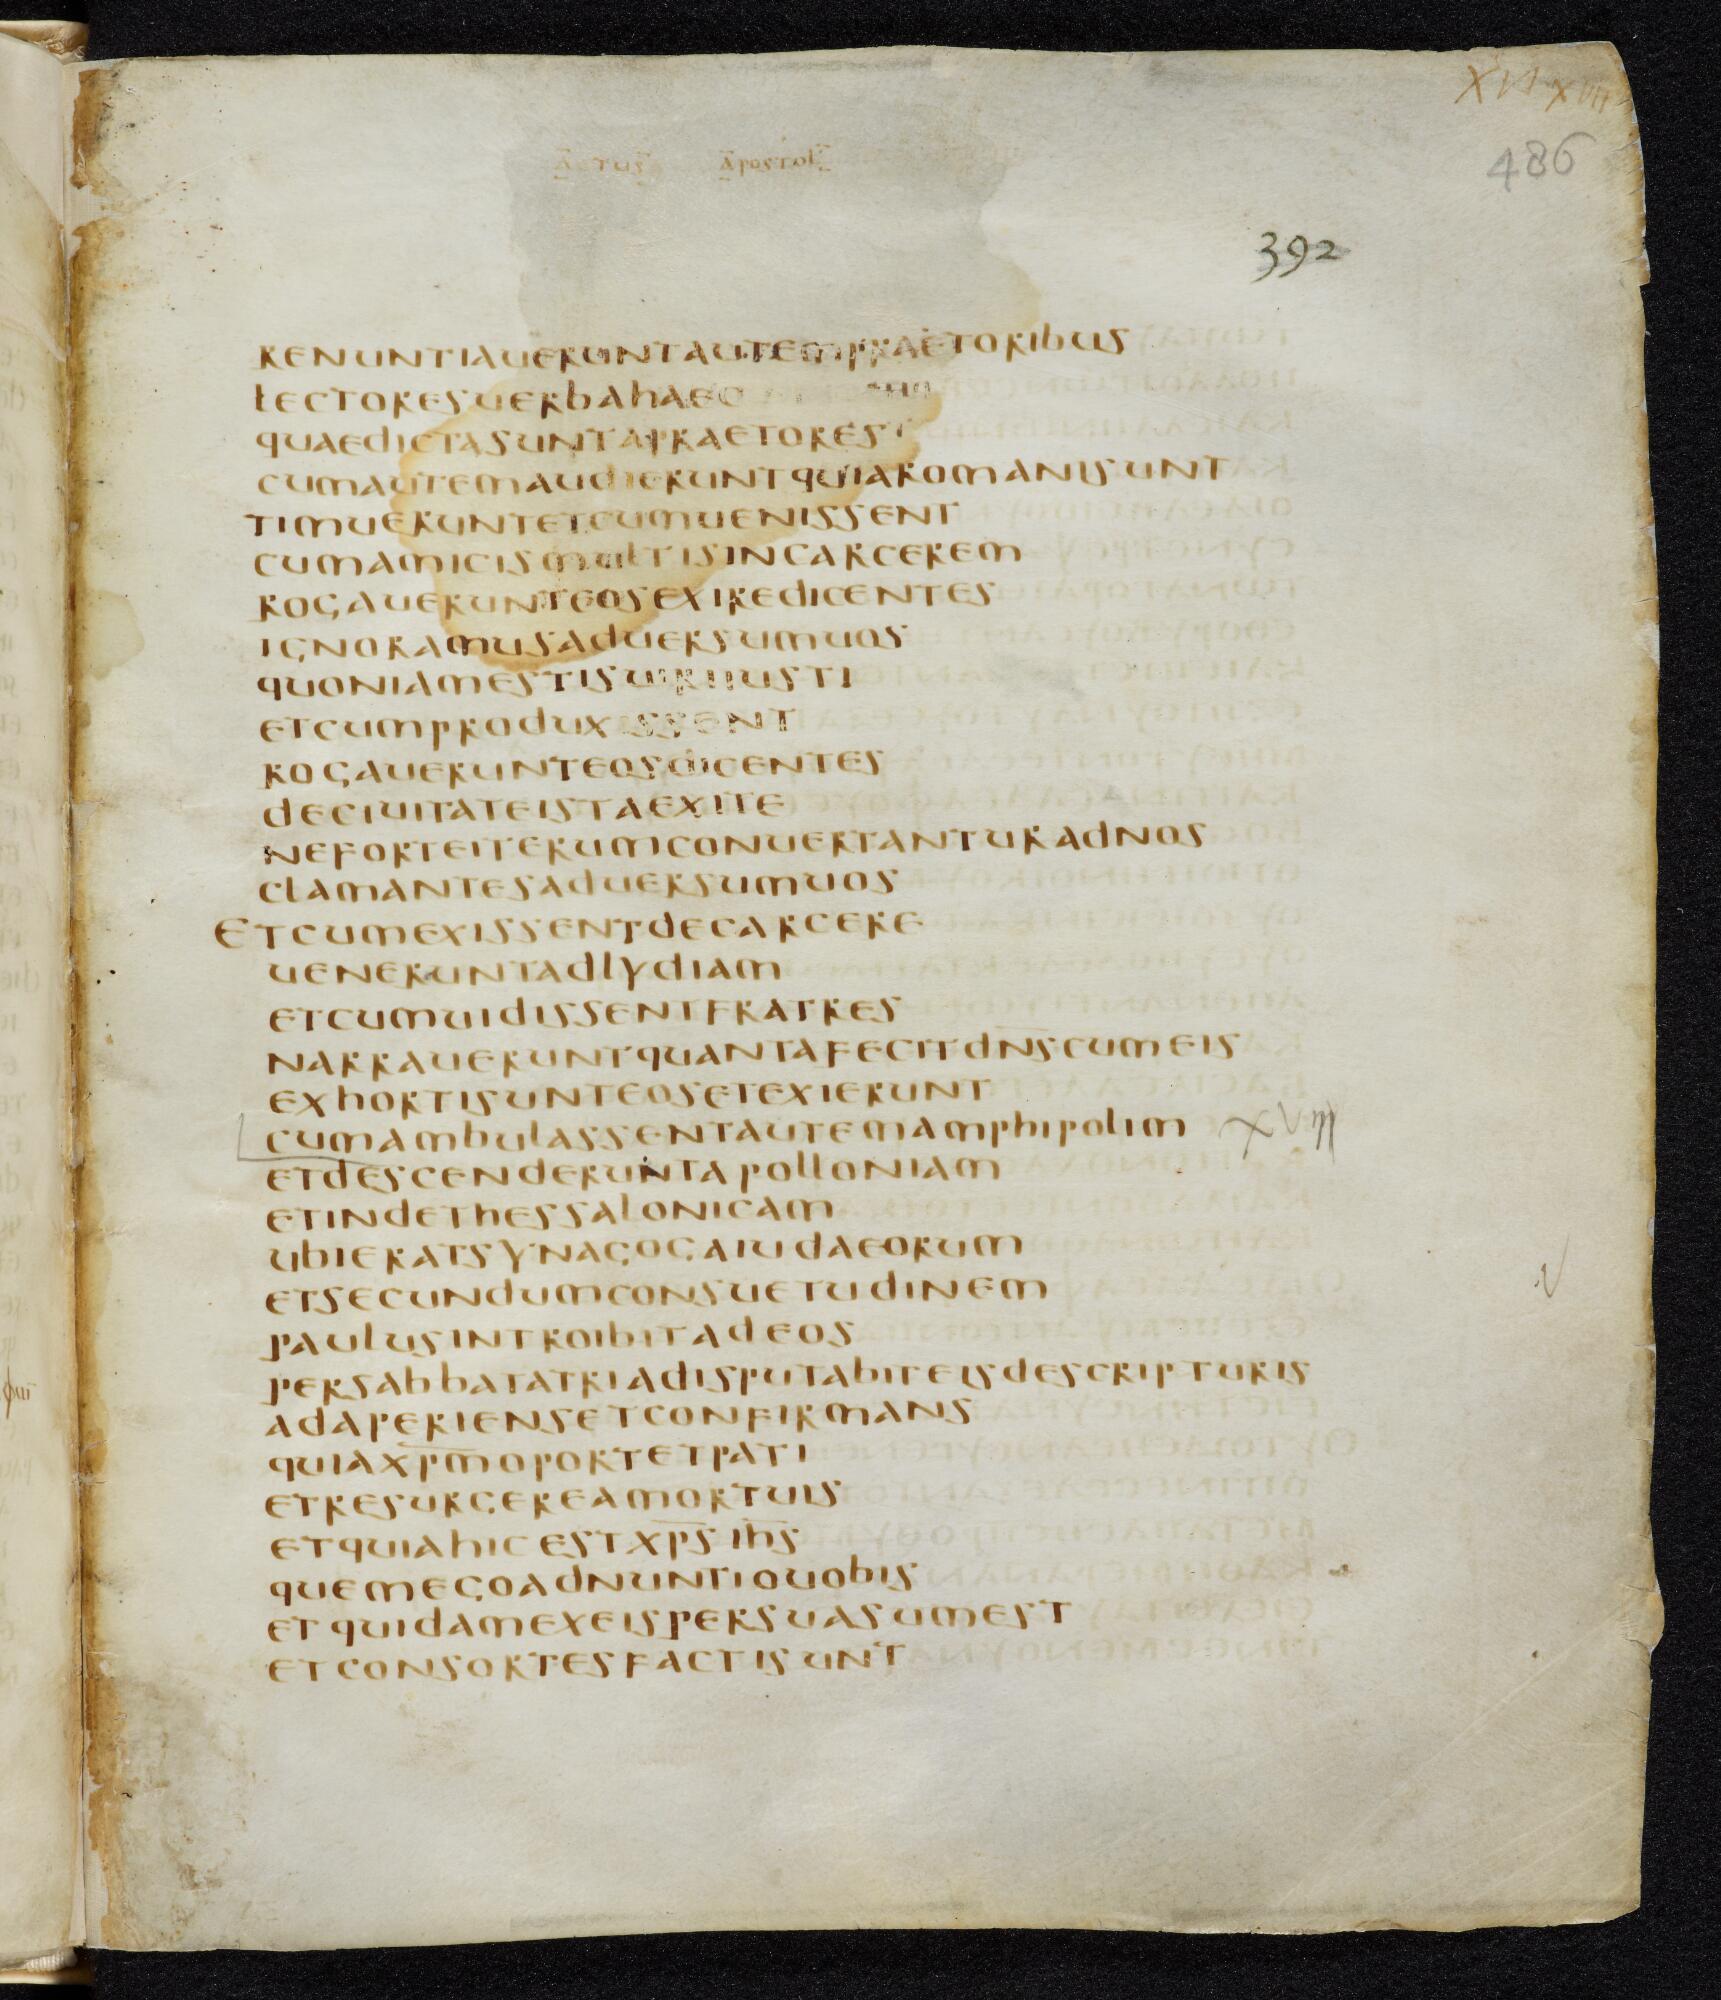 XVI XVII
486
ACTUS APOSTOL
392
RENUNTIAUERUNTAUTEMPRAETORIBUS
LECTORESUERBAHAEC
QUAEDICTASUNTAPRAETORES
CUMAUTEMAUDIERUNTQUIAROMANISUNT
TIMUERUNTETCUMUENISSENT
CUMAMICISMULTISINCARCEREM
ROGAUERUNTEOSEXIREDICENTES
IGNORAMUSADUERSUMUOS
QUONIAMESTISUIRIIUSTI
ETCUMPRODUXISSENT
ROGAUERUNTEOSDICENTES
DECIUITATEISTAEXITE
NEFORTEITERUMCONUERTANTURADNOS
CLAMANTESADUERSUMUOS
ETCUMEXISSENTDECARCERE
UENERUNTADLYDIAM
ETCUMUIDISSENTFRATRES
NARRAUERUNTQUANTAFECITDN̅SCUMEIS
EXHORTISUNTEOSETEXIERUNT
CUMAMBULASSENTAUTEMAMPHIPOLIM XVII
ETDESCENDERUNTAPOLLONIAM
ETINDETHESSALONICAM
UBIERATSYNAGOGAIUDAEORUM
ETSECUNDUMCONSUETUDINEM
PAULUSINTROIBITADEOS
PERSABBATATRIADISPUTABITEISDESCRIPTURIS
ADAPERIENSETCONFIRMANS
QUIAXP̅MOPORTETPATI
ETRESURGEREAMORTUIS
ETQUIAHICESTXP̅SIH̅S
QUEMEGOADNUNTIOUOBIS
ETQUIDAMEXEISPERSUASUMEST
ETCONSORTESFACTISUNT